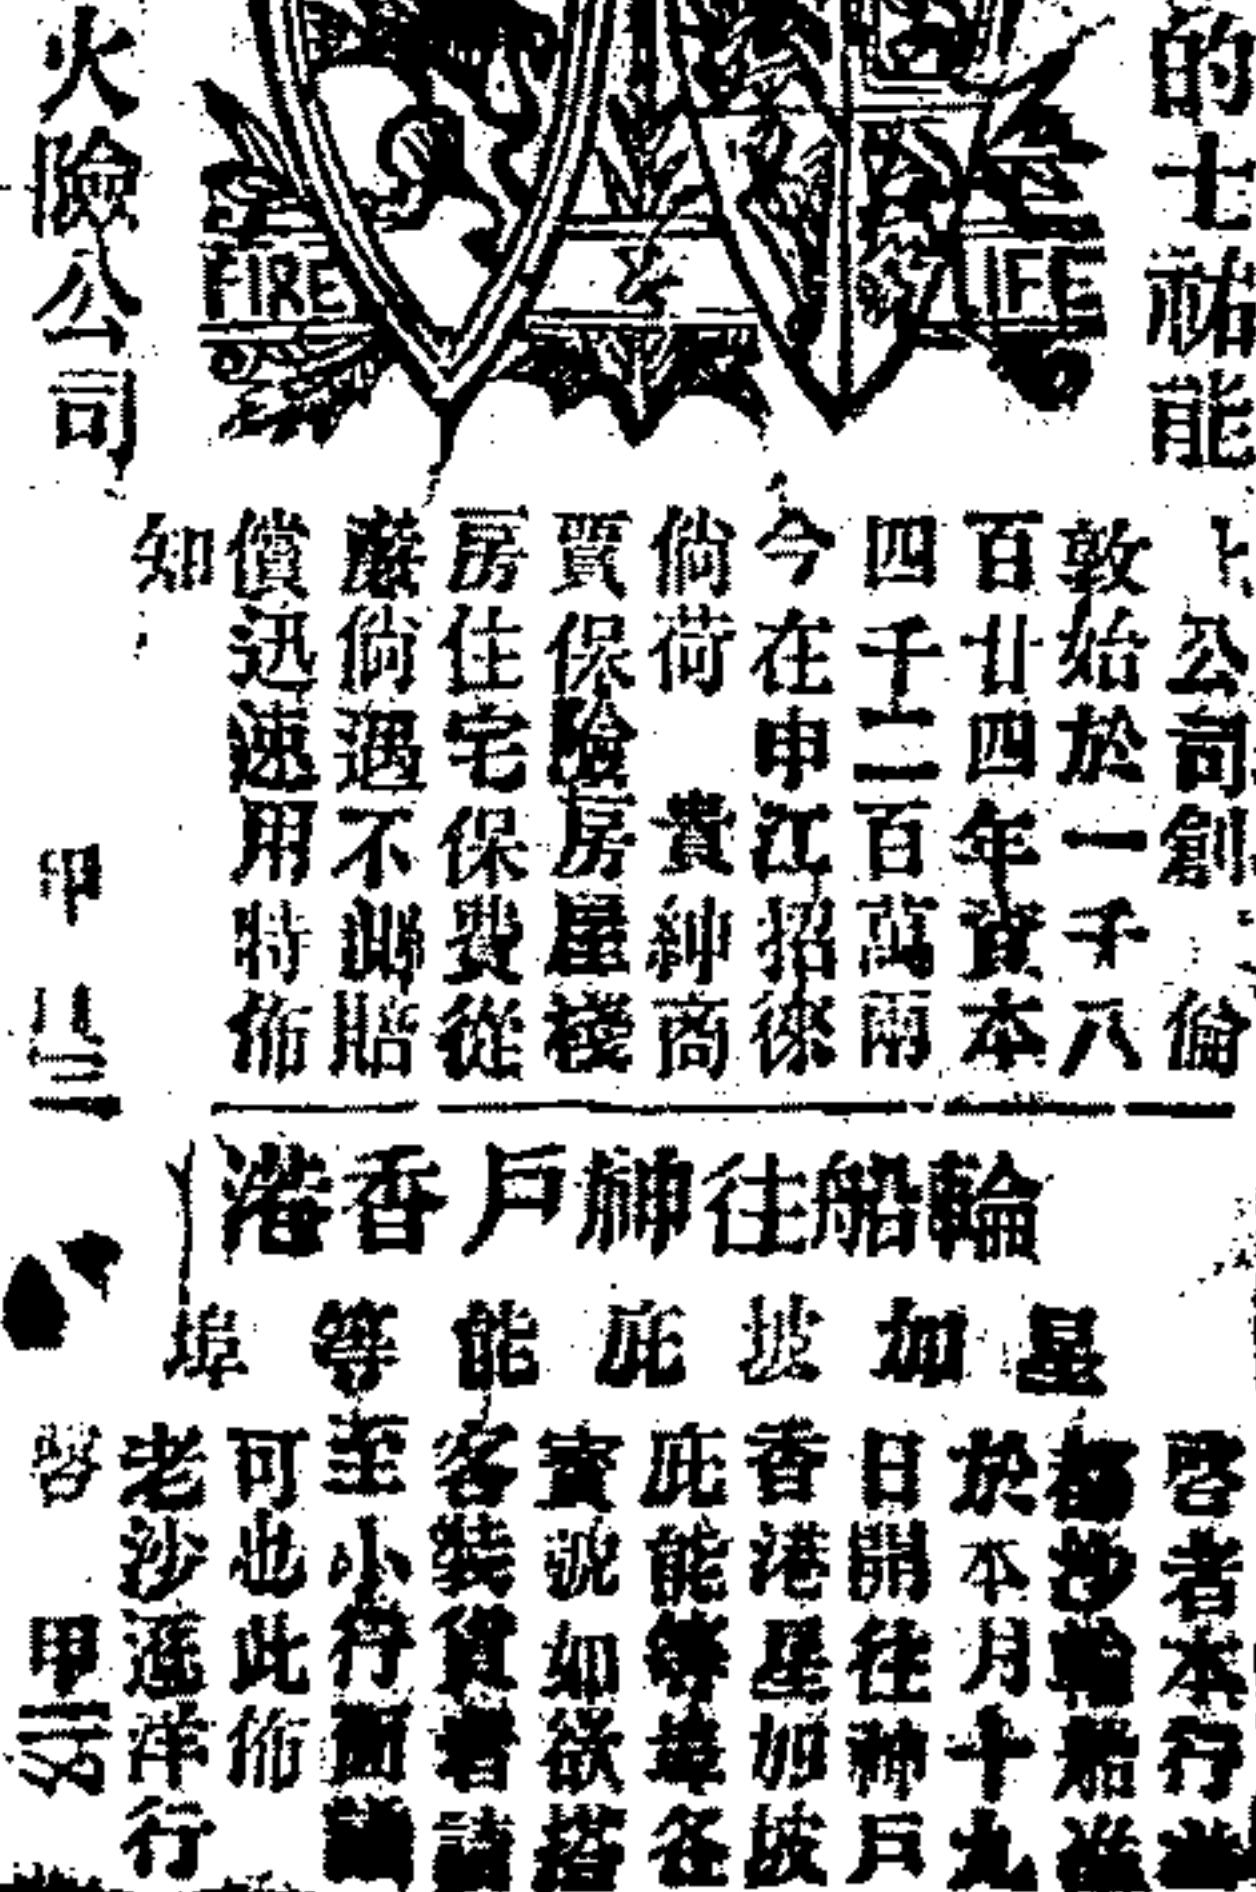 的士祐能
火險公司
FIRE
LIFE
上公司創 倫
敦始於一千八
百廿四年資本
四千二百萬兩
今在申江招徠
倘荷 貴紳商
賈保險房屋棧
房住宅保費從
廉倘遇不測賠
償迅速用特佈
知
甲
輪船往神戶香港
星加坡庇能等埠
啓者本行
沙輪船准
於本月十九
日開往神戶
香港星加坡
庇能等埠各
寶號如欲搭
客裝貨者請
至小行面議
可也此佈
老沙遜洋行
啓 甲